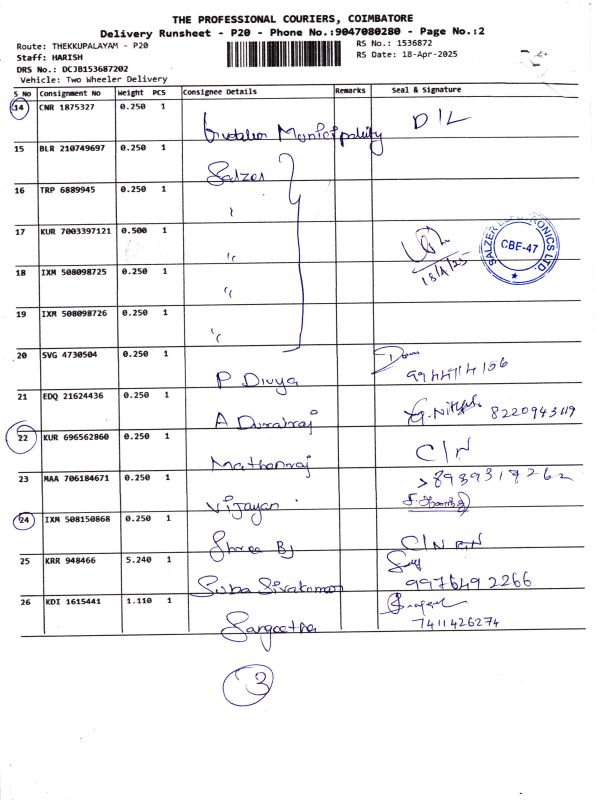 THE PROFESSIONAL COURIERS, COIMBATORE
Delivery Runsheet - P20 - Phone No.:9047080280 - Page No.:2
Route: THEKKUPALAYAM - P20
RS No.: 1536872
Staff: HARISH
RS Date: 18-Apr-2025
DRS No.: DCJB153687202
Vehicle: Two Wheeler Delivery
S No Consignment No Weight PCS Consignee Details Remarks Seal & Signature
14 CNR 1875327 0.250 1 Municipality D/L
15 BLR 210749697 0.250 1 Salzer
16 TRP 6889945 0.250 1 "
17 KUR 7003397121 0.500 1 " 18/4/25 SALZER ELECTRONICS LTD. CBE-47
18 IXM 508098725 0.250 1 "
19 IXM 508098726 0.250 1 "
20 SVG 4730504 0.250 1 P Divya 9944714106
21 EDQ 21624436 0.250 1 A Durairaj
22 KUR 696562860 0.250 1 Mathanraj C/N
23 MAA 706184671 0.250 1 Vijayan
24 IXM 508150868 0.250 1 Shree BJ C/N
25 KRR 948466 5.240 1 Suba Sivakumar 9976492266
26 KDI 1615441 1.110 1 Sangeetha 7411426274
3